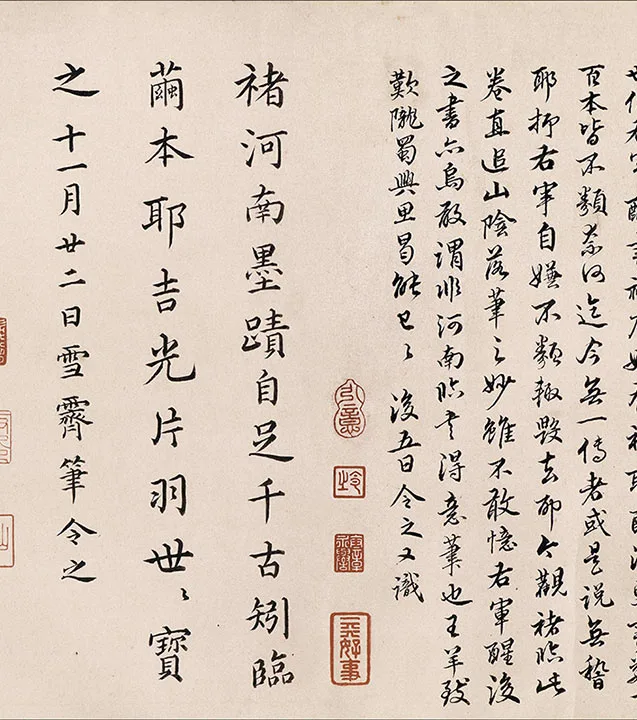 百本皆不類奈何迄今無一傳者或是說無稽
耶抑右軍自嫌不類輒毀去 今觀褚臨此
卷直追山陰落筆之妙雖不敢憶右軍醒後
之書亦烏敢謂非河南臨 得意筆也王羊致
歎隴蜀興思曷能已〻 後五日令之又識
褚河南墨蹟自足千古矧臨
繭本耶吉光片羽世〻寶
之十一月廿二日雪霽筆令之